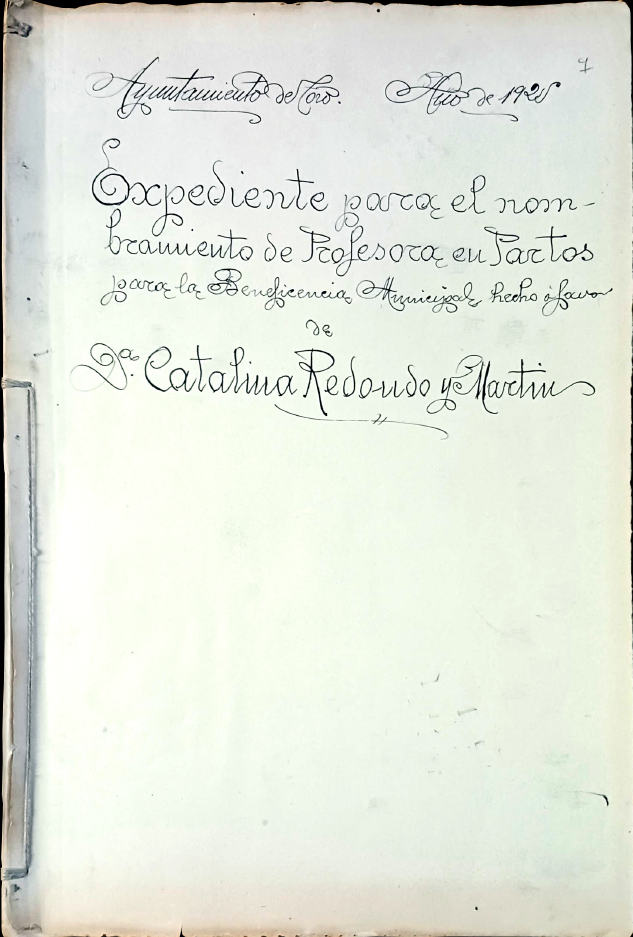 7
Ayuntamiento de Toro. Año de 1925
Expediente para el nom-
bramiento de Profesora en Partos
para la Beneficencia Municipal, hecho á favor
de
Dª. Catalina Redondo y Martin